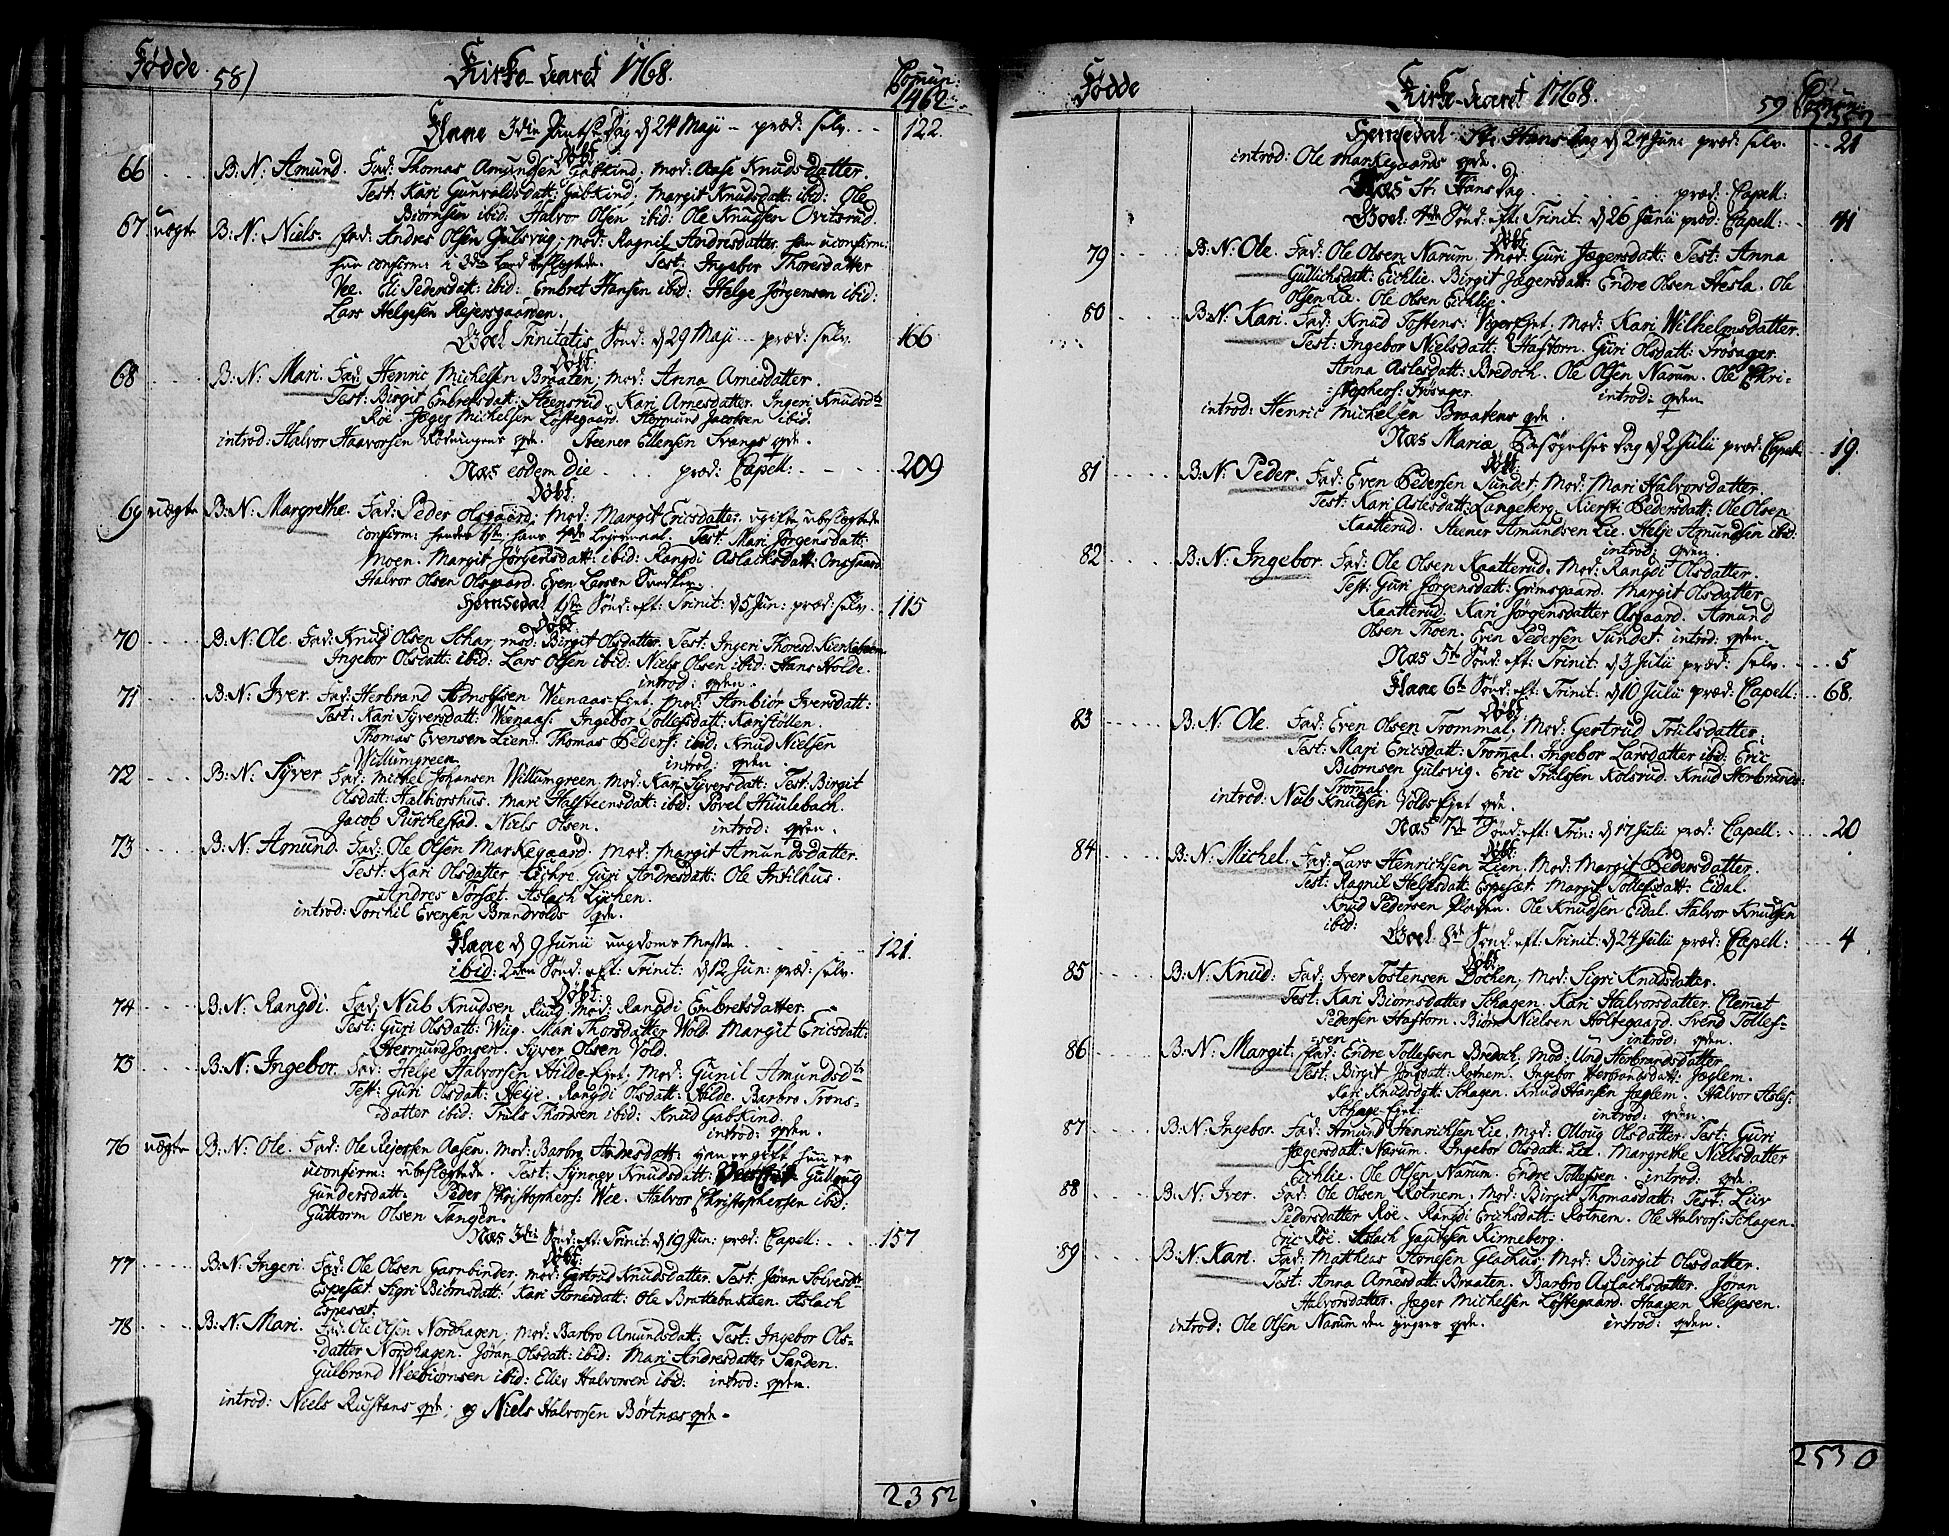 Fødde 58) Kirke-Aaret 1768. Comun:
1462.
Flaae 3die Pintse Dag d 24 Maji – præd: selv. 122.
Døbt:
66 B: N: Amund. Fad: Thomas Amundsen Gabkind, Mod: Aase Knudsdatter.
Test: Kari Gunvoldsdatt: Gabkind, Margit Knudsdatt: ibid: Ole
Biørnsen ibid: Halvor Olsen ibid: Ole Knudsen Ovitsrud.
67 uægte B: N: Niels. Fad: Andres Olsen Gulsvig, mod: Ragnil Andresdatter. han uconfirm:
hun confirm: i 3die Leed beslegtede. Test: Ingebor Thoresdatter
Vee. Eli Pedersdatt: ibid: Embret Hansen ibid: Helge Jørgensen ibid:
Lars Helgesen Rejersgaarden.
Goel Trinitatis Sønd: d 29 Maji – præd: selv. 166
Døbt:
68 B: N: Mari. Fad: Henric Michelsen Braaten, mod: Anna Arnesdatter.
Test: Birgit Embretsdatt: Steensrud. Kari Arnesdatter. Ingeri Knudsdtr
Roe. Jæger Michelsen Løstegaard. Hormund Jacobsen ibid.
introd: Halvor Haavorsen Rødningens qde. Steener Ellensen Svangs qde.
Næs eodem die præd: Capell: 209
Døbt:
69 uægte B: N: Margrethe. Fad: Peder Olsgaard, Mod: Margit Ericsdatter. ugifte ubeslegtede
confirm: hendes 1ste, hans Lejermaal. Test: Mari Jørgensdatt:
Moen. Margit Jørgensdatt: ibid: Rangdi Aslacksdatt: Omsgaard
Halvor Olsen Olsgaard. Even Larsen
Hemsedal 1ste Sønd: eft: Trinit: d 5 Jun: præd: selv. 115
Døbt:
70 B: N: Ole. Fad: Knud Olsen Schar, mod: Birgit Olsdatter. Test: Ingeri Thoresd:
Ingebor Olsdatt: ibid: Lars Olsen ibid: Niels Olsen ibid: Hans Holde.
introd: qden.
71 B: N: Iver. Fad: Herbrand Arnolfsen Weenaas-Ejet, mod: Hombiør Iversdatt:
Test: Kari Syversdatt: Weenaas. Ingebor Tollefsdatt: Karistollen.
Thomas Evensen Lien. Thomas Peders: ibid: Knud Nielsen
Willumgreen. introd: qden.
72 B: N: Syver. Fad: Michel Johansen Willumgreen. Mod: Kari Syversdatt: Test: Birgit
Olsdatt: Halbiorshus. Mari Halsteensdatt: ibid: Povel Huulebach.
Jacob Purchestad. Niels Olsen. introd: qden.
73 B: N: Amund. Fad: Ole Olsen Markegaard. Mod: Margit Amundsdatter.
Test: Kari Olsdatter Eichre. Guri Andresdatt: Ole Intilhus.
Andres Torset. Aslach Lychen.
introd: Torchil Evensen Brandvolds qde.
Flaae d 9 Junii ungdoms Messe.
ibid: 2den Sønd: eft: Trinit: d 12 Jun: præd: selv. 121.
Døbt:
74 B: N: Rangdi. Fad: Nub Knudsen Ruug. Mod: Rangdi Embretsdatter.
Test: Guri Olsdatt: Wug. Mari Thorsdatter Vold. Margit Ericsdatt:
Hermundsonsen. Syver Olsen Vold.
75 B: N: Ingebor. Fad: Helje Halvorsen Hilde-Ejet, Mod: Gunil Amundsdtr
Test: Guri Olsdatt: Heije. Rangdi Olsdatt: Hilde. Barbro Trons-
datter ibid: Truls Thordsen ibid: Knud Gabkind.
introd: qden.
76 uægte B: N: Ole. Fad: Ole Rejersen Aasen. Mod: Barbro Andresdatt: han er gift hun er
uconfirm: ubeslegtede. Test: Synnev Knudsdatt: Gulloug
Gundersdatt: Peder Christophers: Wee. Halvor Christophersen ibid:
Guttorm Olsen Tangen.
Næs 3die Sønd: eft: Trinit: d 19 Jun: præd: Capell: 157
Døbt:
77 B: N: Ingeri. Fad: Ole Olsen Garnbinder, mod: Gertrud Knudsdatter. Test: Jøran Solvesdtr
Espesæt. Sigri Biørnsdatt: Kari Arnesdatt: Ole Brattebakken. Aslach
Espesæt.
78 B: N: Mari. Fad: Ole Olsen Nordhagen, Mod: Barbro Amundsdatt: Test: Ingebor Ols-
datter Nordhagen. Jøran Olsdatt: ibid: Mari Andresdatter Sanden.
Gulbrand Weebiørnsen ibid: Ellev Halvorsen ibid: introd: qden.
introd: Niels Rustans qde; og Niels Halvorsen Børtnæs qde.
2352
Fødde Kirke-Aaret 1768. 59 Comun:
2352
Hemsedal St: Hans Dag d 24 Juni præd: selv. 21
introd: Ole Markegaards qde.
Næs St: Hans Dag præd: Capell:
Goel 4de Sønd: eft: Trinit: d 26 Junii præd: Capell: 41
Døbt:
79 B: N: Ole. Fad: Ole Olsen Narum. Mod: Guri Jægersdatt: Test: Anna
Gullichsdatt: Eichlie. Birgit Jægersdatt: Endre Olsen Hesla. Ole
Olsen Lie. Ole Olsen Eichlie.
80 B: N: Kari. Fad: Knud Tostens: Viger Ejet. Mod: Kari Wilhelmsdatter.
Test: Ingebor Nielsdatt: Haftorn. Guri Olsdatt: Trøsager.
Anna Aslesdatt: Bredoch. Ole Olsen Narum. Ole Chri-
stophers: Trøsager. introd: qden.
introd: Henric Michelsen Braatens qde.
Næs Mariæ Besøgelses Dag d 2 Julii præd: Capell: 19.
Døbt:
81 B: N: Peder. Fad: Even Pedersen Sundet. Mod: Mari Halvorsdatter.
Test: Kari Aslesdatt: Langeberg. Kiersti Pedersdatt: Ole Olsen
Raatterud. Steener Amundsen Lie. Helje Amundsen ibid:
introd: qden.
82 B: N: Ingebor. Fad: Ole Olsen Raatterud. Mod: Rangdi Olsdatter.
Test: Guri Jørgensdatt: Grimsgaard. Margit Olsdatter
Raatterud. Kari Jørgensdatter Olsgaard. Amund
Olsen Thoen. Even Pedersen Sundet. introd: qden.
Næs 5te Sønd: eft: Trinit: d 3 Julii præd: selv. 5
Flaae 6te Sønd: eft: Trinit: d 10 Julii præd: Capell: 68.
Døbt:
83 B: N: Ole. Fad: Even Olsen Trommal, Mod: Gertrud Trulsdatter.
Test: Mari Ericsdatt: Trommal. Ingebor Larsdatter ibid: Eric
Biørnsen Gulsvig. Eric Trulsen Kolsrud. Knud Herbrands:
Tromal.
introd: Nub Knudsen Volds Ejet qde.
Næs 7de Sønd: eft: Trin: d 17 Julii præd: Capell: 20
Døbt:
84 B: N: Michel. Fad: Lars Henrichsen Lien, Mod: Margit Pedersdatter.
Test: Ragnil Helgesdatt: Espesæt. Margit Tollefsdatt: Eidal.
Knud Pedersen Pladsen. Ole Knudsen Eidal. Halvor Knudsen
ibid:
Goel 8de Sønd: eft: Trinit: d 24 Julii præd: Capell: 4
Døbt:
85 B: N: Knud: Fad: Iver Tostensen Dochen, Mod: Sigri Knudsdatter.
Test: Kari Biørnsdatter Schagen. Kari Halvorsdatter. Clemet
Pedersen Haftorn. Biørn Nielsen Holtegaard. Svend Tollef-
sen. introd: qden.
86 B: N: Margit: Fad: Endre Tollefsen Bredoch, Mod: Ung Herbrandsdatter.
Test: Birgit Jonsdatt: Rotnem. Ingebor Herbrandsdatt: Jæglem.
Kari Knudsdatt: Schagen. Knud Hansen Jæglem. Halvor Aslef:
Schage-Ejet: introd: qden.
87 B: N: Ingebor. Fad: Amund Henrichsen Lie, Mod: Olloug Olsdatter. Test: Guri
Jægersdatt: Narum. Ingebor Olsdatt: Lie. Margrethe Nielsdatter
Eichlie. Ole Olsen Narum. Endre Tollefsen. introd: qde.
88 B: N: Iver. Fad: Ole Olsen Rotnem, Mod: Birgit Thomasdatt: Test: Liv
Pedersdatter Roe. Rangdi Erichsdatt: Rotnem. Ole Halvors: Schagen.
Eric Roe. Aslach Gautesen Rinneberg.
89 B: N: Kari. Fad: Matthias Arnesen Gladhus, Mod: Birgit Olsdatter.
Test: Anna Arnesdatt: Braaten. Barbro Aslachsdatter. Jøran
Halvorsdatter. Jæger Michelsen Løstegaard. Haagen Helgesen.
introd: Ole Olsen Narum den yngres qde. introd: qden.
2530